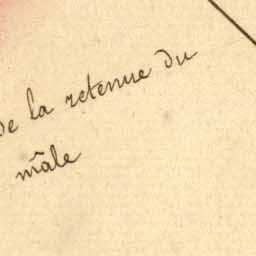 de la retenue du
mâle